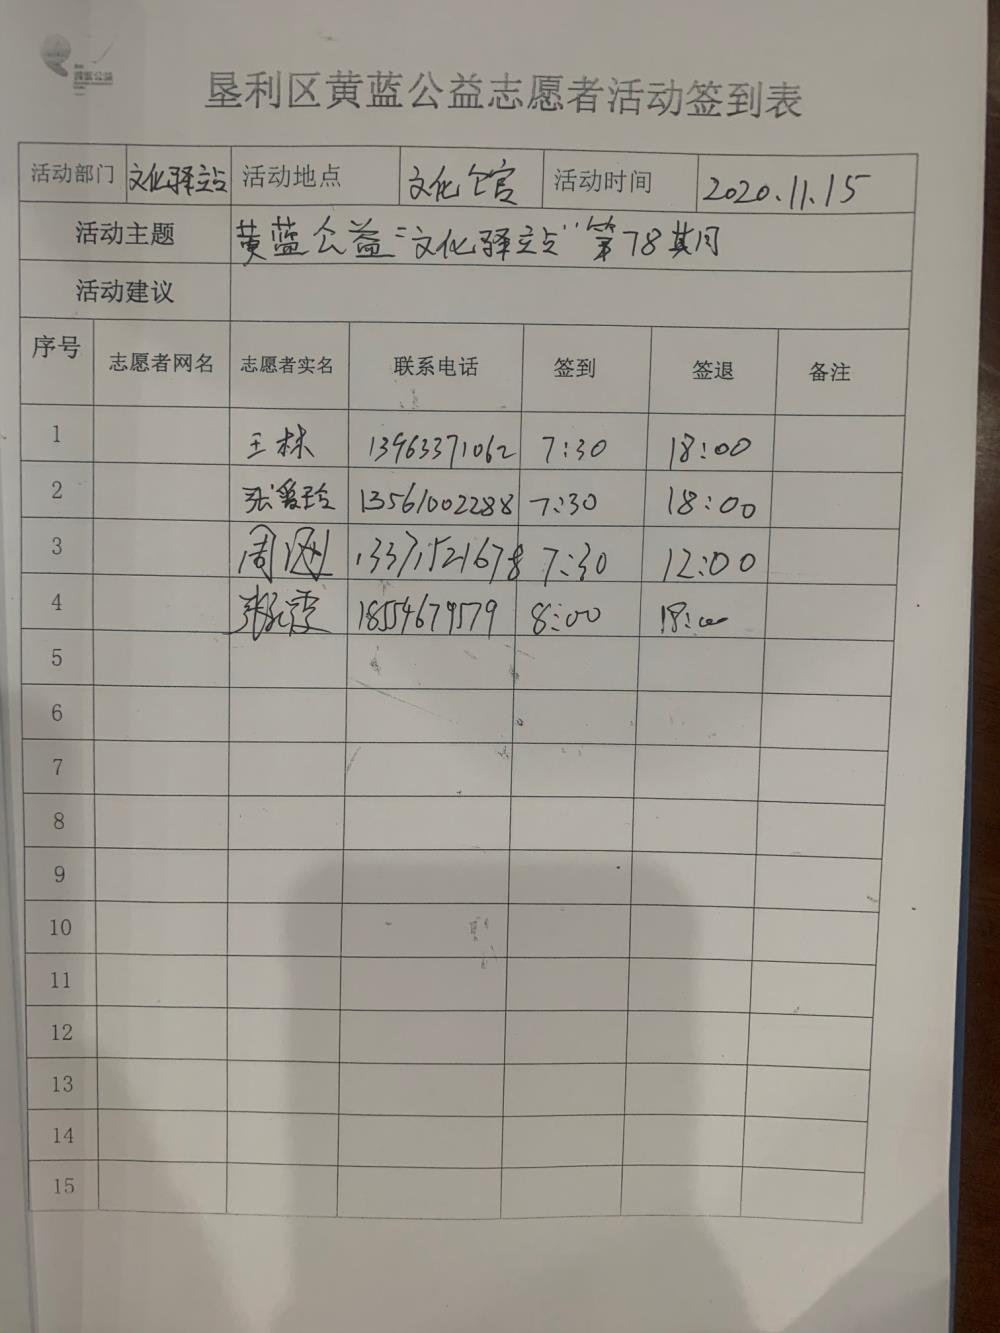 黄蓝公益
垦利区黄蓝公益志愿者活动签到表
活动部门 文化驿站 活动地点 文化馆 活动时间 2020.11.15
活动主题 黄蓝公益"文化驿站"第78期
活动建议
序号 志愿者网名 志愿者实名 联系电话 签到 签退 备注
1 王林 13963371062 7:30 18:00
2 张爱玲 13561002288 7:30 18:00
3 周刚 13371521678 7:30 12:00
4 18554679579 8:00 18:00
5
6
7
8
9
10
11
12
13
14
15